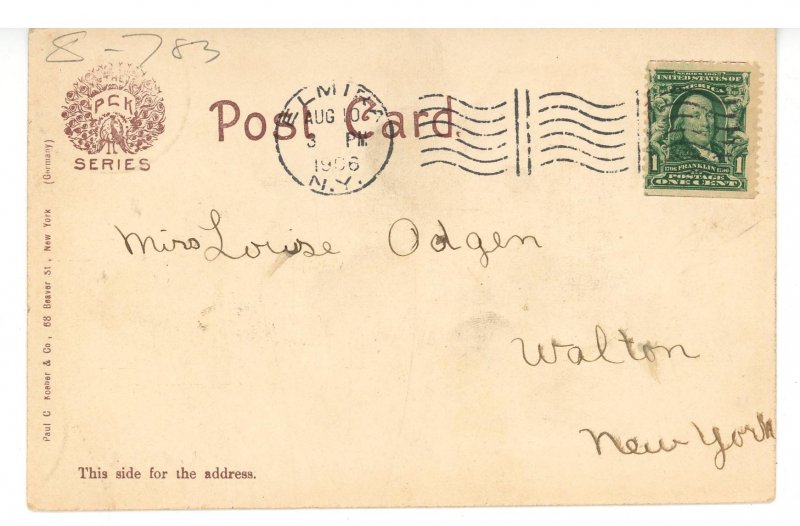 8-783
PCK
SERIES
Post Card.
ELMIRA
AUG 06
3 PM
1906
N.Y.
SERIES 1902
UNITED STATES OF AMERICA
1 1
1706 FRANKLIN 1790
POSTAGE
ONE CENT
Miss Louise Odgen
Walton
New York
Paul C Koeber & Co, 68 Beaver St, New York (Germany)
This side for the address.